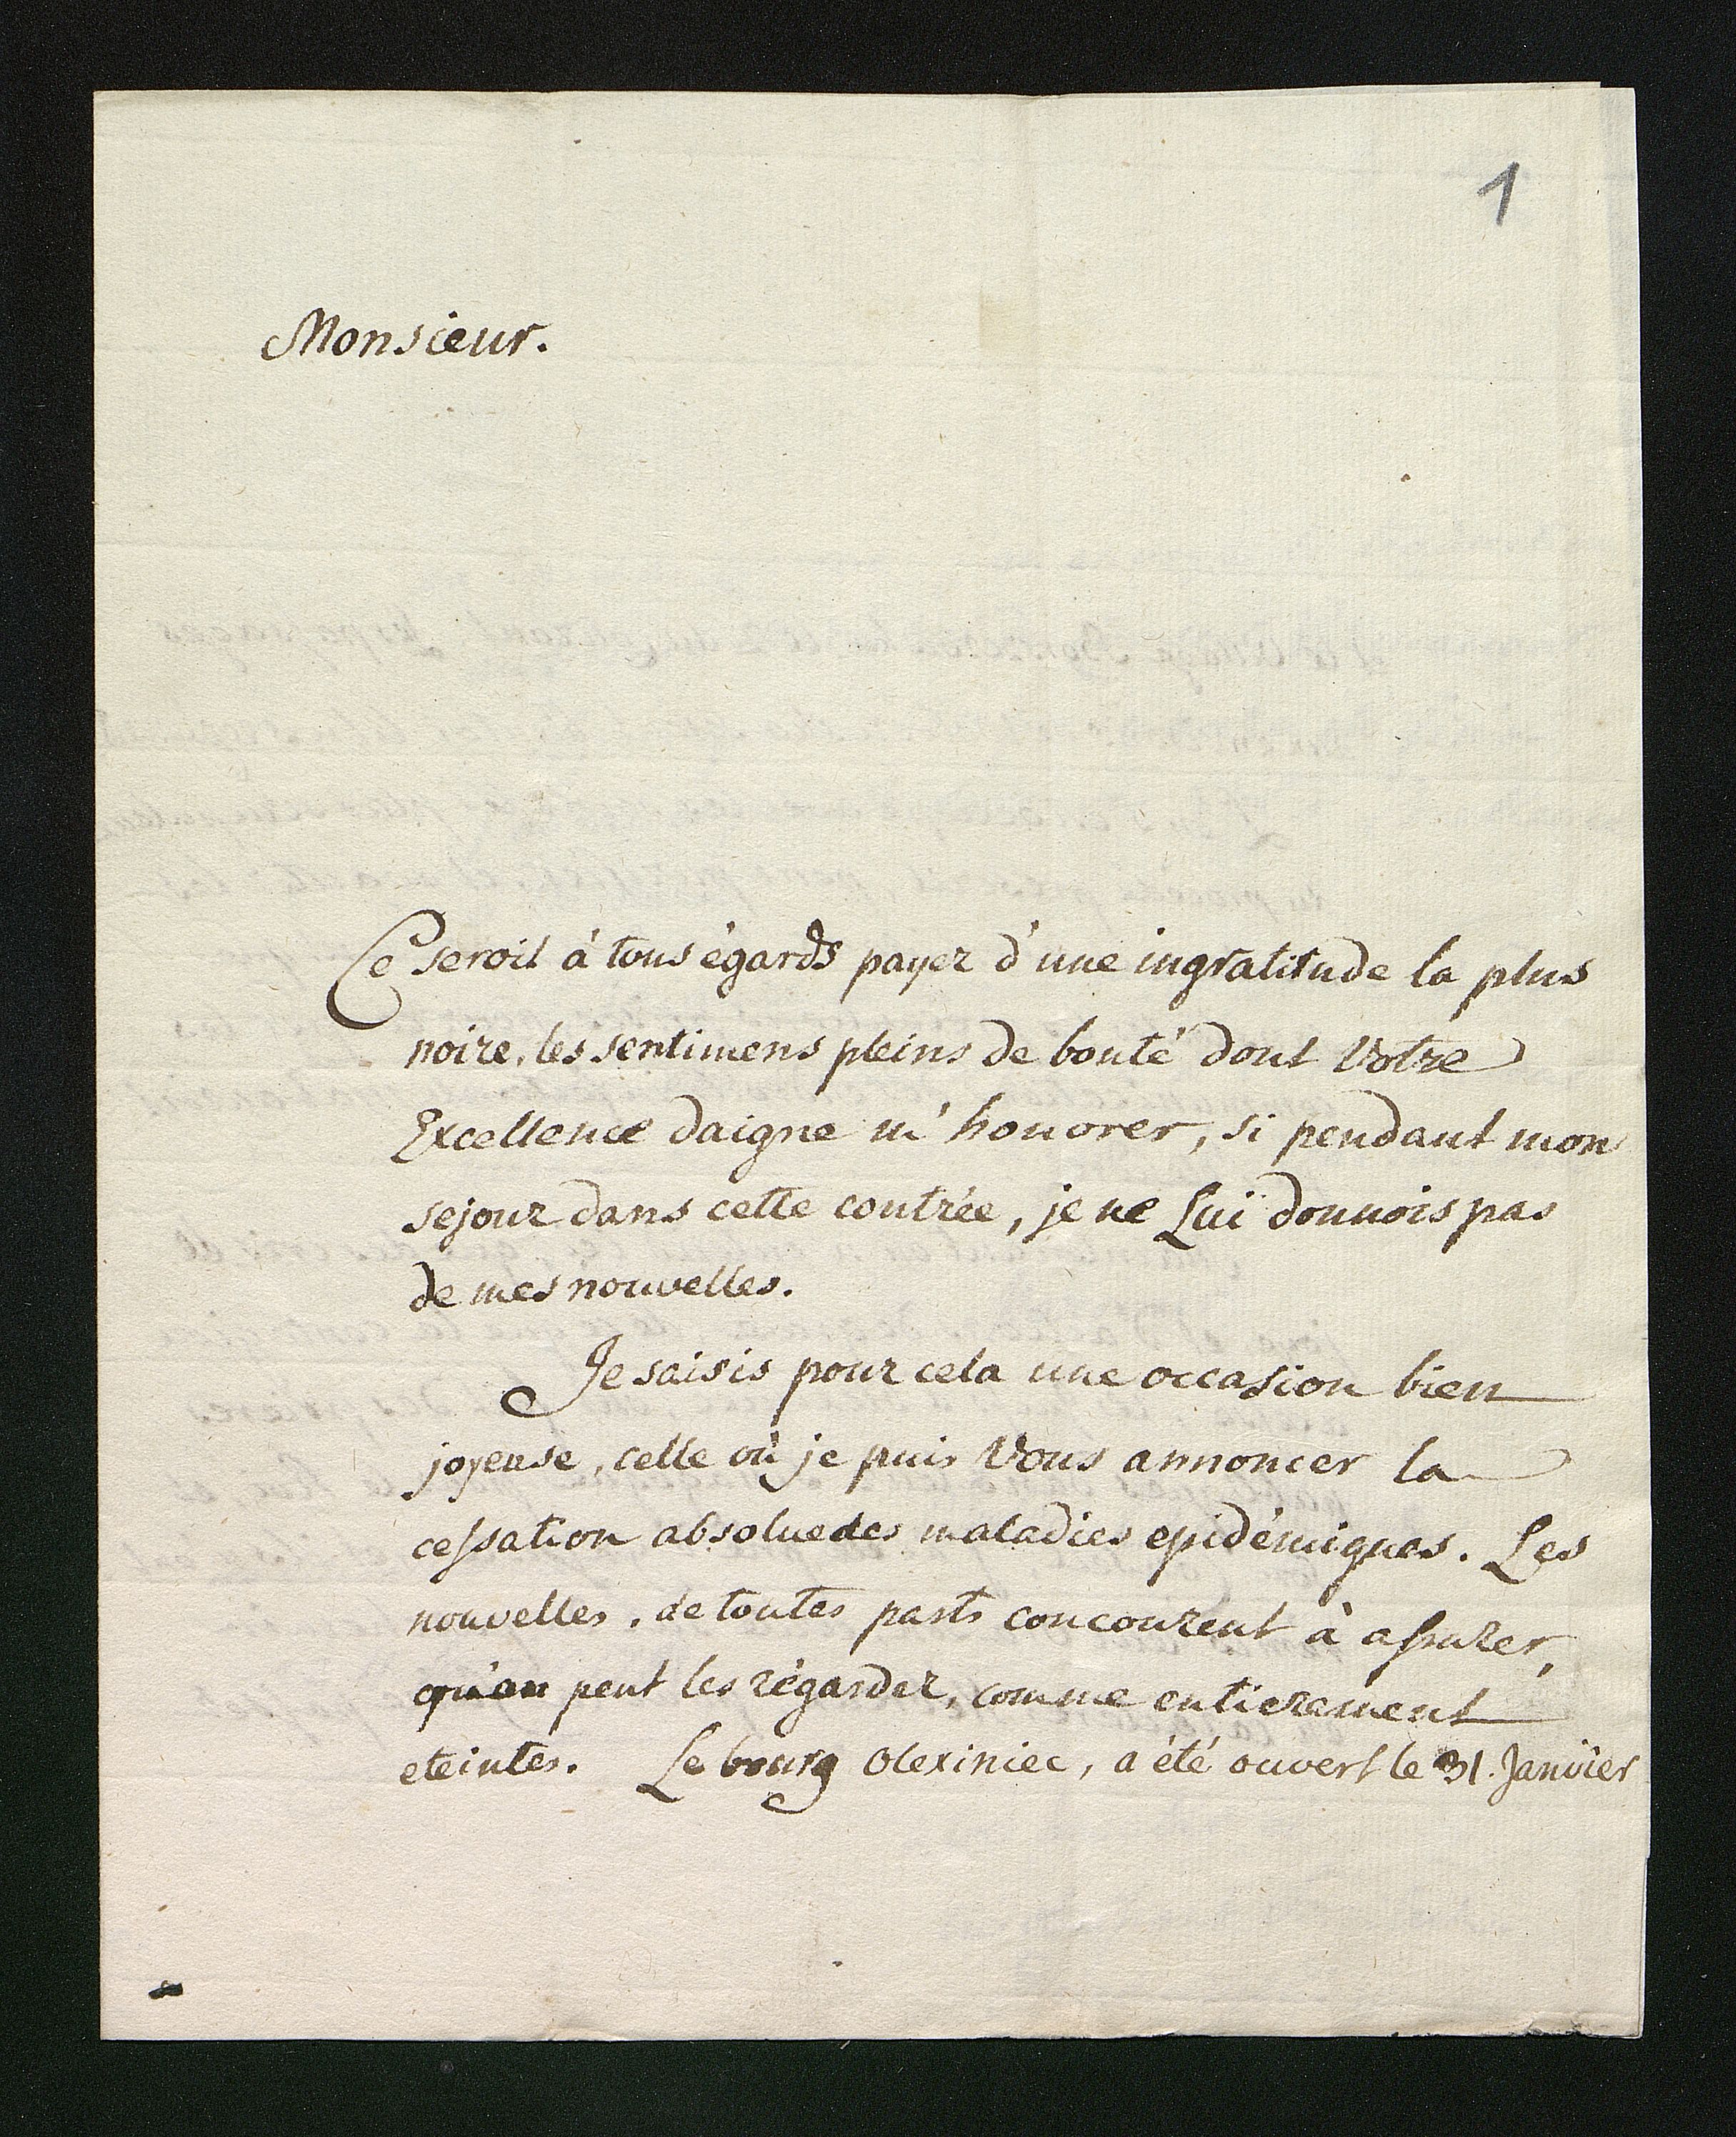 1
Monsieur.
Ce seroit à tous égards payer d'une ingratitude la plus
noire, les sentimens pleins de bonté dont Votre
Excellence daigne m'honorer, si pendant mon
sejour dans cette contrée, je ne Luï donnois pas
de mes nouvelles.
Je saisis pour cela une occasion bien
joyeuse, celle où je puis Vous annoncer la
cessation absolue des maladies epidémiques. Les
nouvelles, de toutes parts concourent à assurer,
qu'on peut les régarder, comme entierement
eteintes. Le bourg Olexiniec, a été ouvert le 31. Janvier